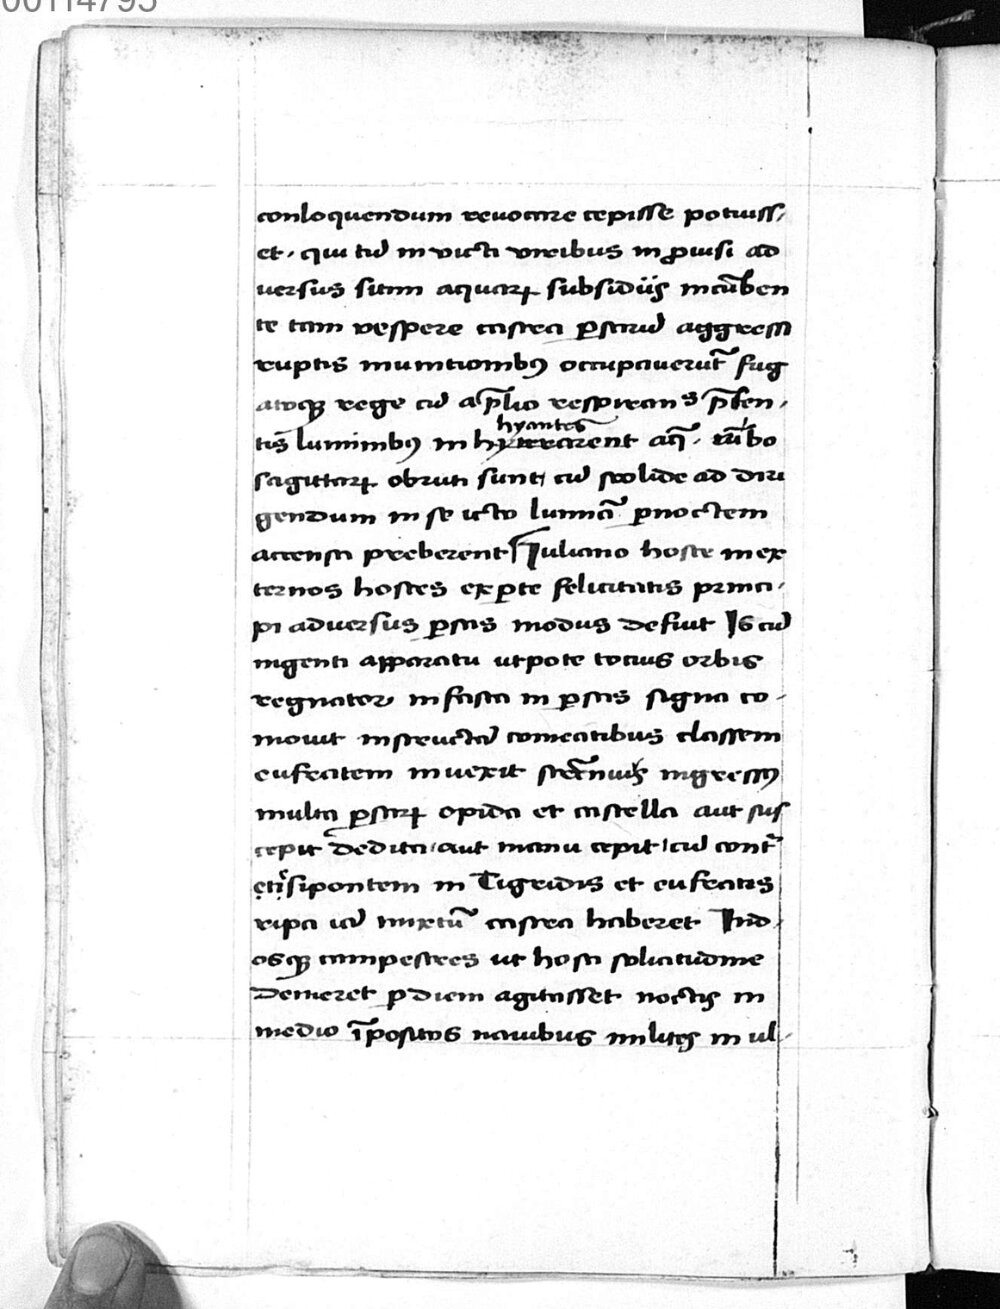 00114795
conloquendum reuocare cepisse potuiss,
et · qui tū inuicti uiribus inꝓuisi ad
uersus sitim aquaꝝ subsidiis incūben
te iam uespere castra ꝑsarū aggressi
ruptis munitionibꝰ occupauerūt fug
atoqꝫ rege cū a p̄lio respirans p̄ben,
hyantes
tis luminibꝰ in aq̄ · nībo
sagittaꝝ obruti sunt cū stolide ad diri
gendum in se ictū lumīa ꝑnoctem
accensa preberent Iuliano hoste in ex
ternos hostes exꝑte felicitatis princi
pi aduersus ꝑsas modus defuit Is cū
ingenti apparatu utpote tocius orbis
regnator infasta in ꝑsas signa co-
mouit instructā comeatibus classem
eufratem inuexit ingressꝰ
multa ꝑsaꝝ opida et castella aut sus
cepit dedita aut manu cepit cū cont̄
etisipontem in Tigridis et eufratis
ripa iā mixtū castra haberet Ind,
osqꝫ campestres ut hosti solicitudine
demeret ꝑ diem agitasset noctis in
medio īpositos nauibus milites in ul-